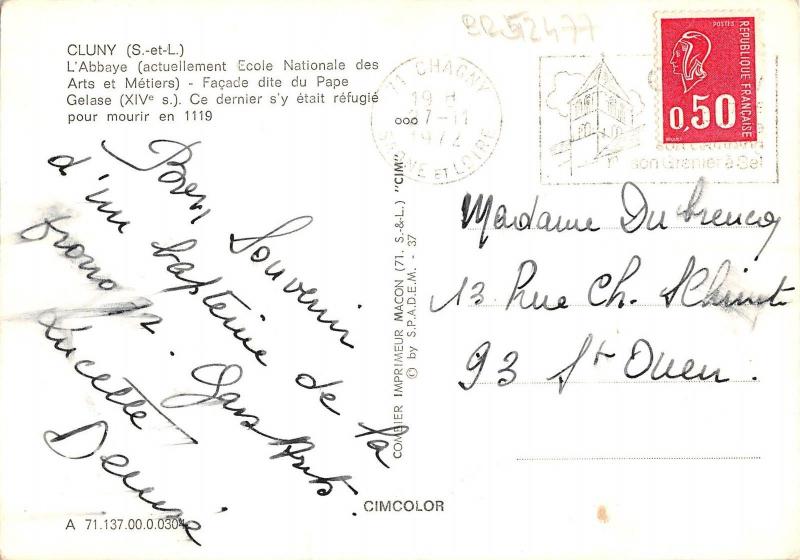 CR52477
CLUNY (S.-et-L.)
L'Abbaye (actuellement Ecole Nationale des
Arts et Métiers) - Façade dite du Pape
Gelase (XIVe s.). Ce dernier s'y était réfugié
pour mourir en 1119
71 CHAGNY
19 H
7-11
1972
SAONE ET LOIRE
son Grenier à Sel
POSTES
REPUBLIQUE FRANÇAISE
0,50
Bon Souvenir
d'un baptême de la
promo 72. Gars Arts.
Lucette
Denise
COMBIER IMPRIMEUR MACON (71. S.-&-L.) "CIM"
© by S.P.A.D.E.M. - 37
Madame Dubreucq
13 Rue Ch. Schmidt
93 St Ouen.
CIMCOLOR
A 71.137.00.0.0304